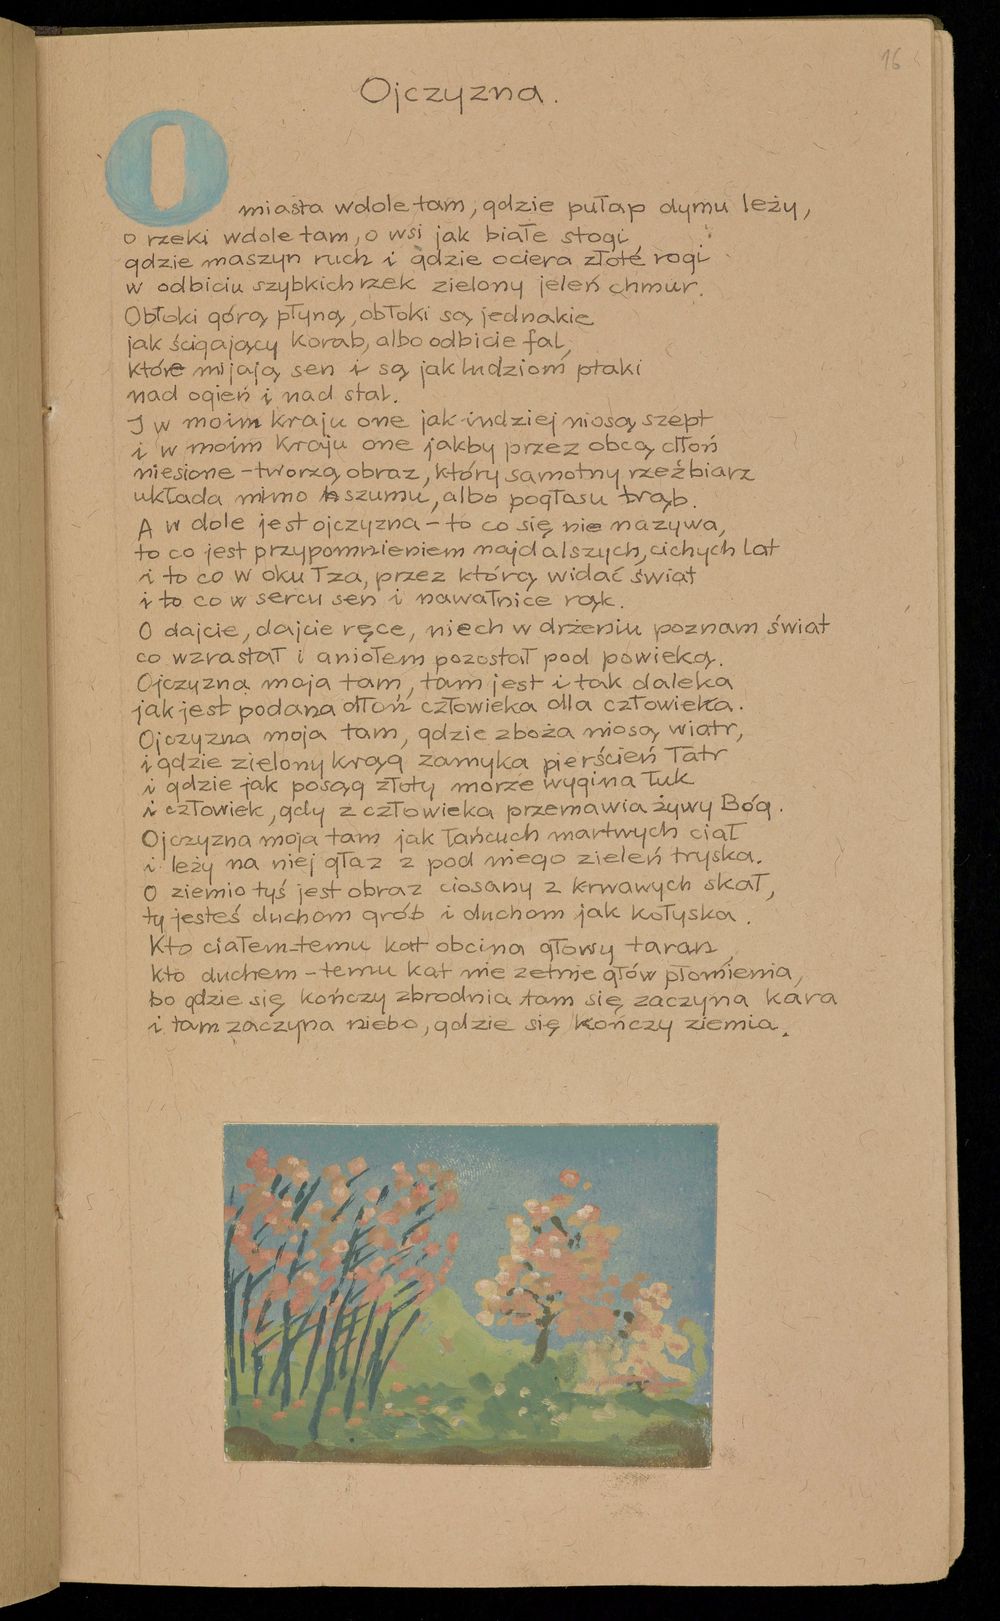 16
Ojczyzna.
O miasta wdole tam, gdzie pułap dymu leży,
o rzeki wdole tam, o wsi jak białe stogi,
gdzie maszyn ruch i gdzie ociera złote rogi
w odbiciu szybkich rzek zielony jeleń chmur.
Obłoki górą płyną, obłoki są jednakie
jak ścigający korab, albo odbicie fal,
które mijają sen i są jak ludziom ptaki
nad ogień i nad stal.
I w moim kraju one jak indziej niosą szept
i w moim kraju one jakby przez obcą dłoń
niesione – tworzą obraz, który samotny rzeźbiarz
układa mimo szumu, albo pogłasu trąb.
A w dole jest ojczyzna – to co się nie nazywa,
to co jest przypomnieniem najdalszych, cichych lat
i to co w oku łza, przez którą widać świat
i to co w sercu sen i nawałnice rąk.
O dajcie, dajcie ręce, niech w drżeniu poznam świat
co wzrastał i aniołem pozostał pod powieką.
Ojczyzna moja tam, tam jest i tak daleka
jak jest podana dłoń człowieka dla człowieka.
Ojczyzna moja tam, gdzie zboża niosą wiatr,
i gdzie zielony krąg zamyka pierścień Tatr
i gdzie jak posąg złoty morze wygina łuk
i człowiek, gdy z człowieka przemawia żywy Bóg.
Ojczyzna moja tam jak łańcuch martwych ciał
i leży na niej głaz z pod niego zieleń tryska.
O ziemio tyś jest obraz ciosany z krwawych skał,
ty jesteś duchom grób i duchom jak kołyska.
Kto ciałem – temu kat obcina głowy taran,
kto duchem – temu kat nie zetnie głów płomienia,
bo gdzie się kończy zbrodnia tam się zaczyna kara
i tam zaczyna niebo, gdzie się kończy ziemia.